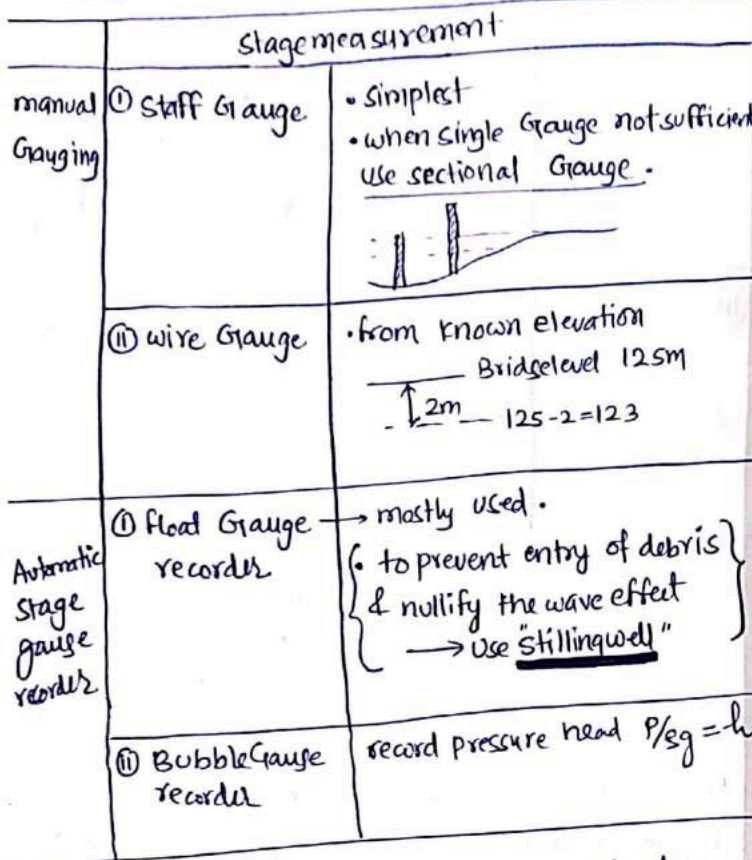 stage measurement
manual
Gauging
① Staff Gauge
• simplest
• when single Gauge not sufficient
use sectional Gauge.
② wire Gauge
• from known elevation
Bridselevel 125m
2m
125-2=123
Automatic
stage
gause
recorder
① float Gauge → mostly used.
recorder
• to prevent entry of debris
& nullify the wave effect
→ use "stillingwell"
② Bubble Gause
recorder
record pressure head P/sg = h